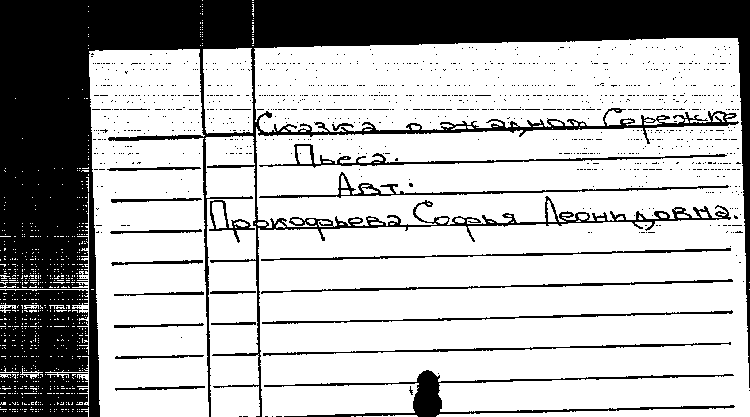 Сказка о жадном Сережке
Пьеса.
Авт.:
Прокофьева, Софья Леонидовна.